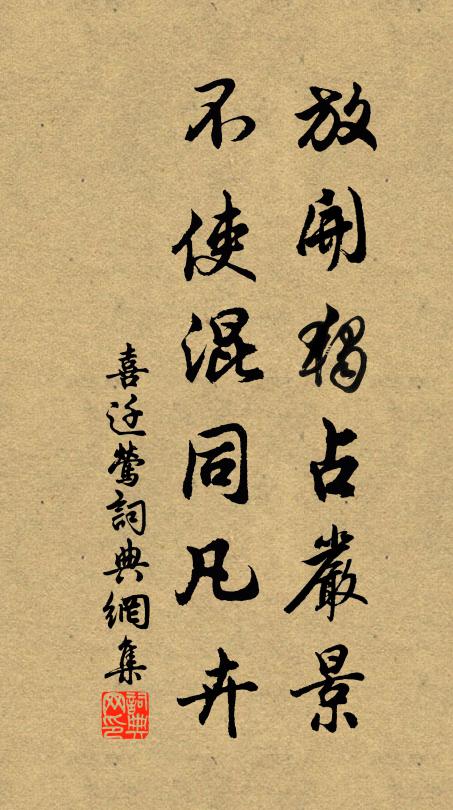 放開獨占嚴景
不使混同凡卉
喜迁鶯詞典網集
詞典
网印